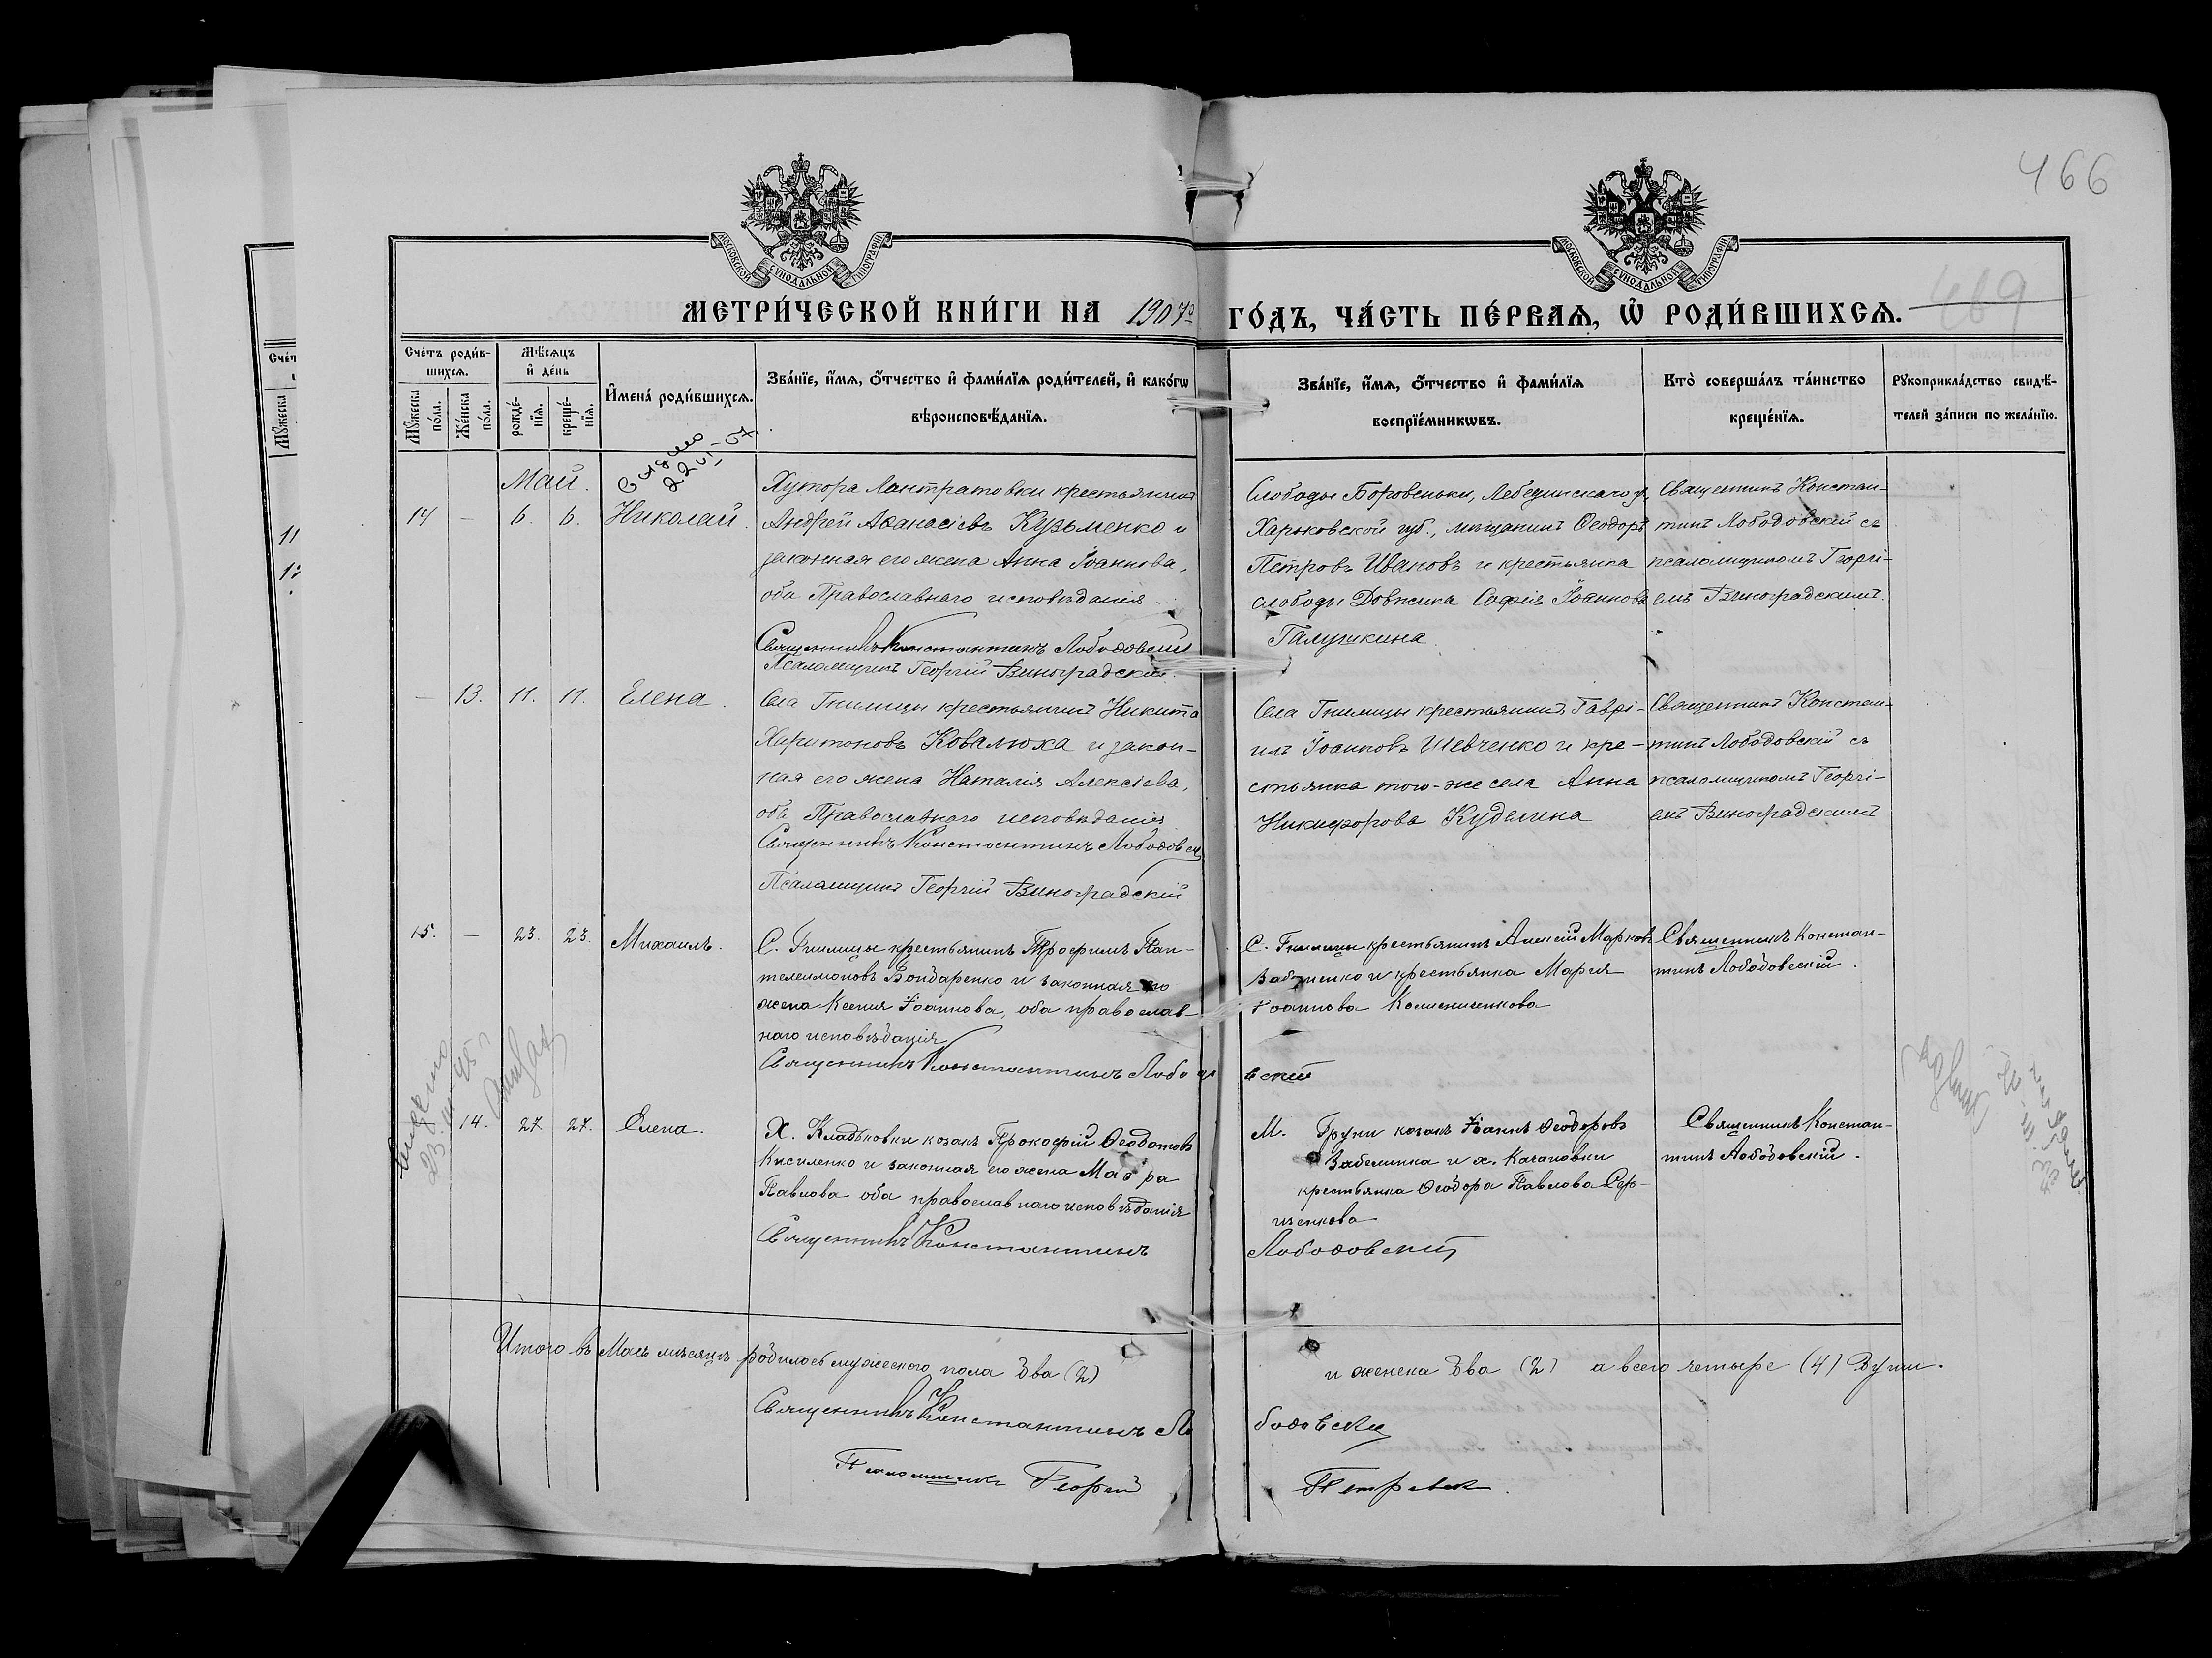 466
469
МОСКОВСКОЙ СѴНОДАЛЬНОЙ ТИПОГРАФІИ
МОСКОВСКОЙ СѴНОДАЛЬНОЙ ТИПОГРАФІИ
МЕТРИ́ЧЕСКОЙ КНИ́ГИ НА 1907й ГО́ДЪ, ЧА́СТЬ ПЕ́РВАѦ, Ѽ РОДИ́ВШИХСѦ.
Сче́тъ роди́в-
шихсѧ.
Мꙋжеска по́ла.
Же́нска по́ла.
Мѣ́сѧцъ
и҆ де́нь
рожде́-
нїѧ.
креще́-
нїѧ.
И҆мена̀ роди́вшихсѧ.
Зва́нїе, и҆́мѧ, ѻ҆́тчество и҆ фами́лїѧ роди́телей, и҆ како́гѡ
вѣроисповѣ́данїѧ.
Зва́нїе, и҆́мѧ, ѻ҆́тчество и҆ фами́лїѧ
воспрїе́мникѡвъ.
Кто̀ соверша́лъ та́инство
креще́нїѧ.
Рꙋкоприкла́дство свидѣ́-
телей за́писи по жела́нїю.
Май.
14 — 6. 6. Николай.
Хутора Лантратовки крестьянинъ
Андрей Аѳанасіевъ Кузьменко и
законная его жена Анна Іоаннова,
оба Православнаго исповѣданія.
Священникъ Константинъ Лободовскій
Псаломщикъ Георгій Виноградскій.
Слободы Боровеньки, Лебединскаго у,
Харьковской губ., мѣщанинъ Ѳеодоръ
Петровъ Ивановъ и крестьянка
слободы Довжика Софія Іоаннова
Галушкина.
Священникъ Констан-
тинъ Лободовскій съ
псаломщикомъ Георгі-
емъ Виноградскимъ.
— 13. 11. 11. Елена.
Села Гнилицы крестьянинъ Никита
Харитоновъ Ковалюха и закон-
ная его жена Наталія Алексіева,
оба Православнаго исповѣданія
Священникъ Константинъ Лободовск
Псаломщикъ Георгій Виноградскій
Села Гнилицы крестьянинъ Гаврі-
илъ Іоанновъ Шевченко и кре-
стьянка того-же села Анна
Никифорова Куделина
Священникъ Констан-
тинъ Лободовскій съ
псаломщикомъ Георгі-
емъ Виноградскимъ
15. — 23. 23. Михаилъ.
С. Гнилицы крестьянинъ Трофимъ Пан-
телеимоновъ Бондаренко и законная его
жена Ксенія Іоаннова, оба православ-
наго исповѣданія
Священникъ Константинъ Лободо вскій
С. Гнилицы крестьянинъ Алексій Марковъ
и крестьянка Марія
Іоаннова
Священникъ Констан-
тинъ Лободовскій.
14. 27. 27. Елена.
Х. Кладьковки козакъ Прокофій Ѳеодотовъ
Кисиленко и законная его жена Мавра
Павлова оба православнаго исповѣданія
Священникъ Константинъ Лободовскій
М. Груни козакъ Іоаннъ Ѳеодоровъ
Забелинка и х. Качановки
крестьянка Ѳеодора Павлова
Священникъ Констан-
тинъ Лободовскій.
Итого въ Маѣ мѣсяцѣ родилось мужескаго пола два (2) и женска два (2) а всего четыре (4) души.
Священникъ Константинъ Лободовскій
Псаломщикъ Георгій